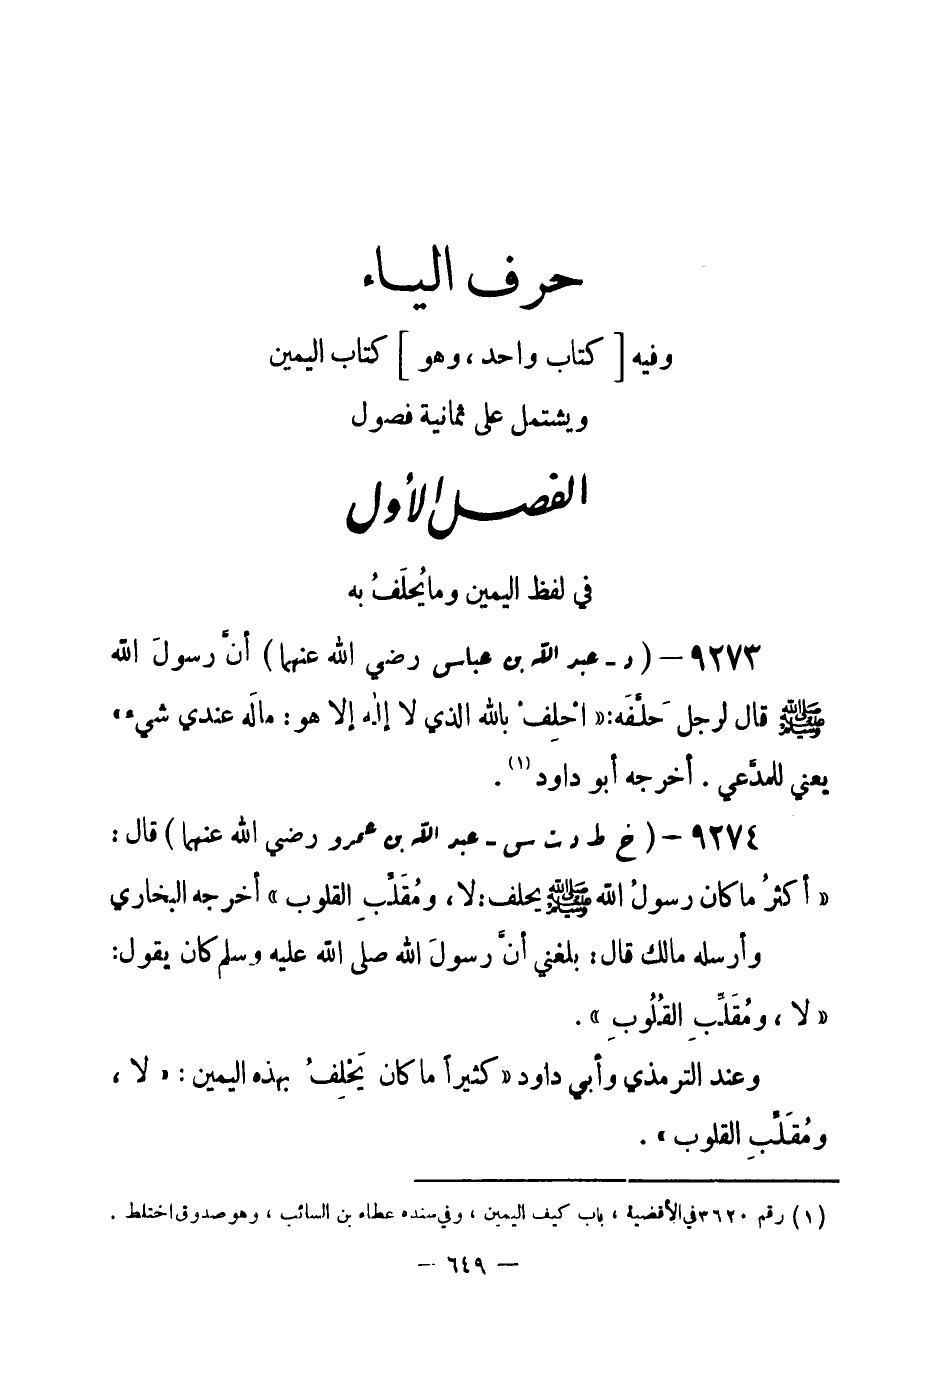 حرف الياء
وفيه [ كتاب واحد ، وهو ] كتاب اليمين
ويشتمل على ثمانية فصول
الفصل الأول
في لفظ اليمين وما يُحلَفُ به
٩٢٧٣ – ( د – عبد اللّه بن عباس رضي اللّه عنهما ) أنَّ رسولَ اللّه
ﷺ قال لرجل حَلَّفَه : « احْلِفْ باللّه الذي لا إلٰه إلا هو : ماله عندي شيء »
يعني للمدَّعي . أخرجه أبو داود (١) .
٩٢٧٤ – ( خ ط د ت س – عبد اللّه بن عمرو رضي اللّه عنهما ) قال :
« أكثرُ ما كان رسولُ اللّه ﷺ يحلف : لا ، ومُقَلِّبِ القلوب » أخرجه البخاري
وأرسله مالك قال : بلغني أنَّ رسولَ اللّه صلى اللّه عليه وسلم كان يقول :
« لا ، ومُقَلِّبِ القُلُوبِ » .
وعند الترمذي وأبي داود « كثيراً ما كان يَحْلِفُ بهذه اليمين : « لا ،
ومُقَلِّبِ القلوب » .
(١) رقم ٣٦٢٠ في الأقضية ، باب كيف اليمين ، وفي سنده عطاء بن السائب ، وهو صدوق اختلط .
– ٦٤٩ –